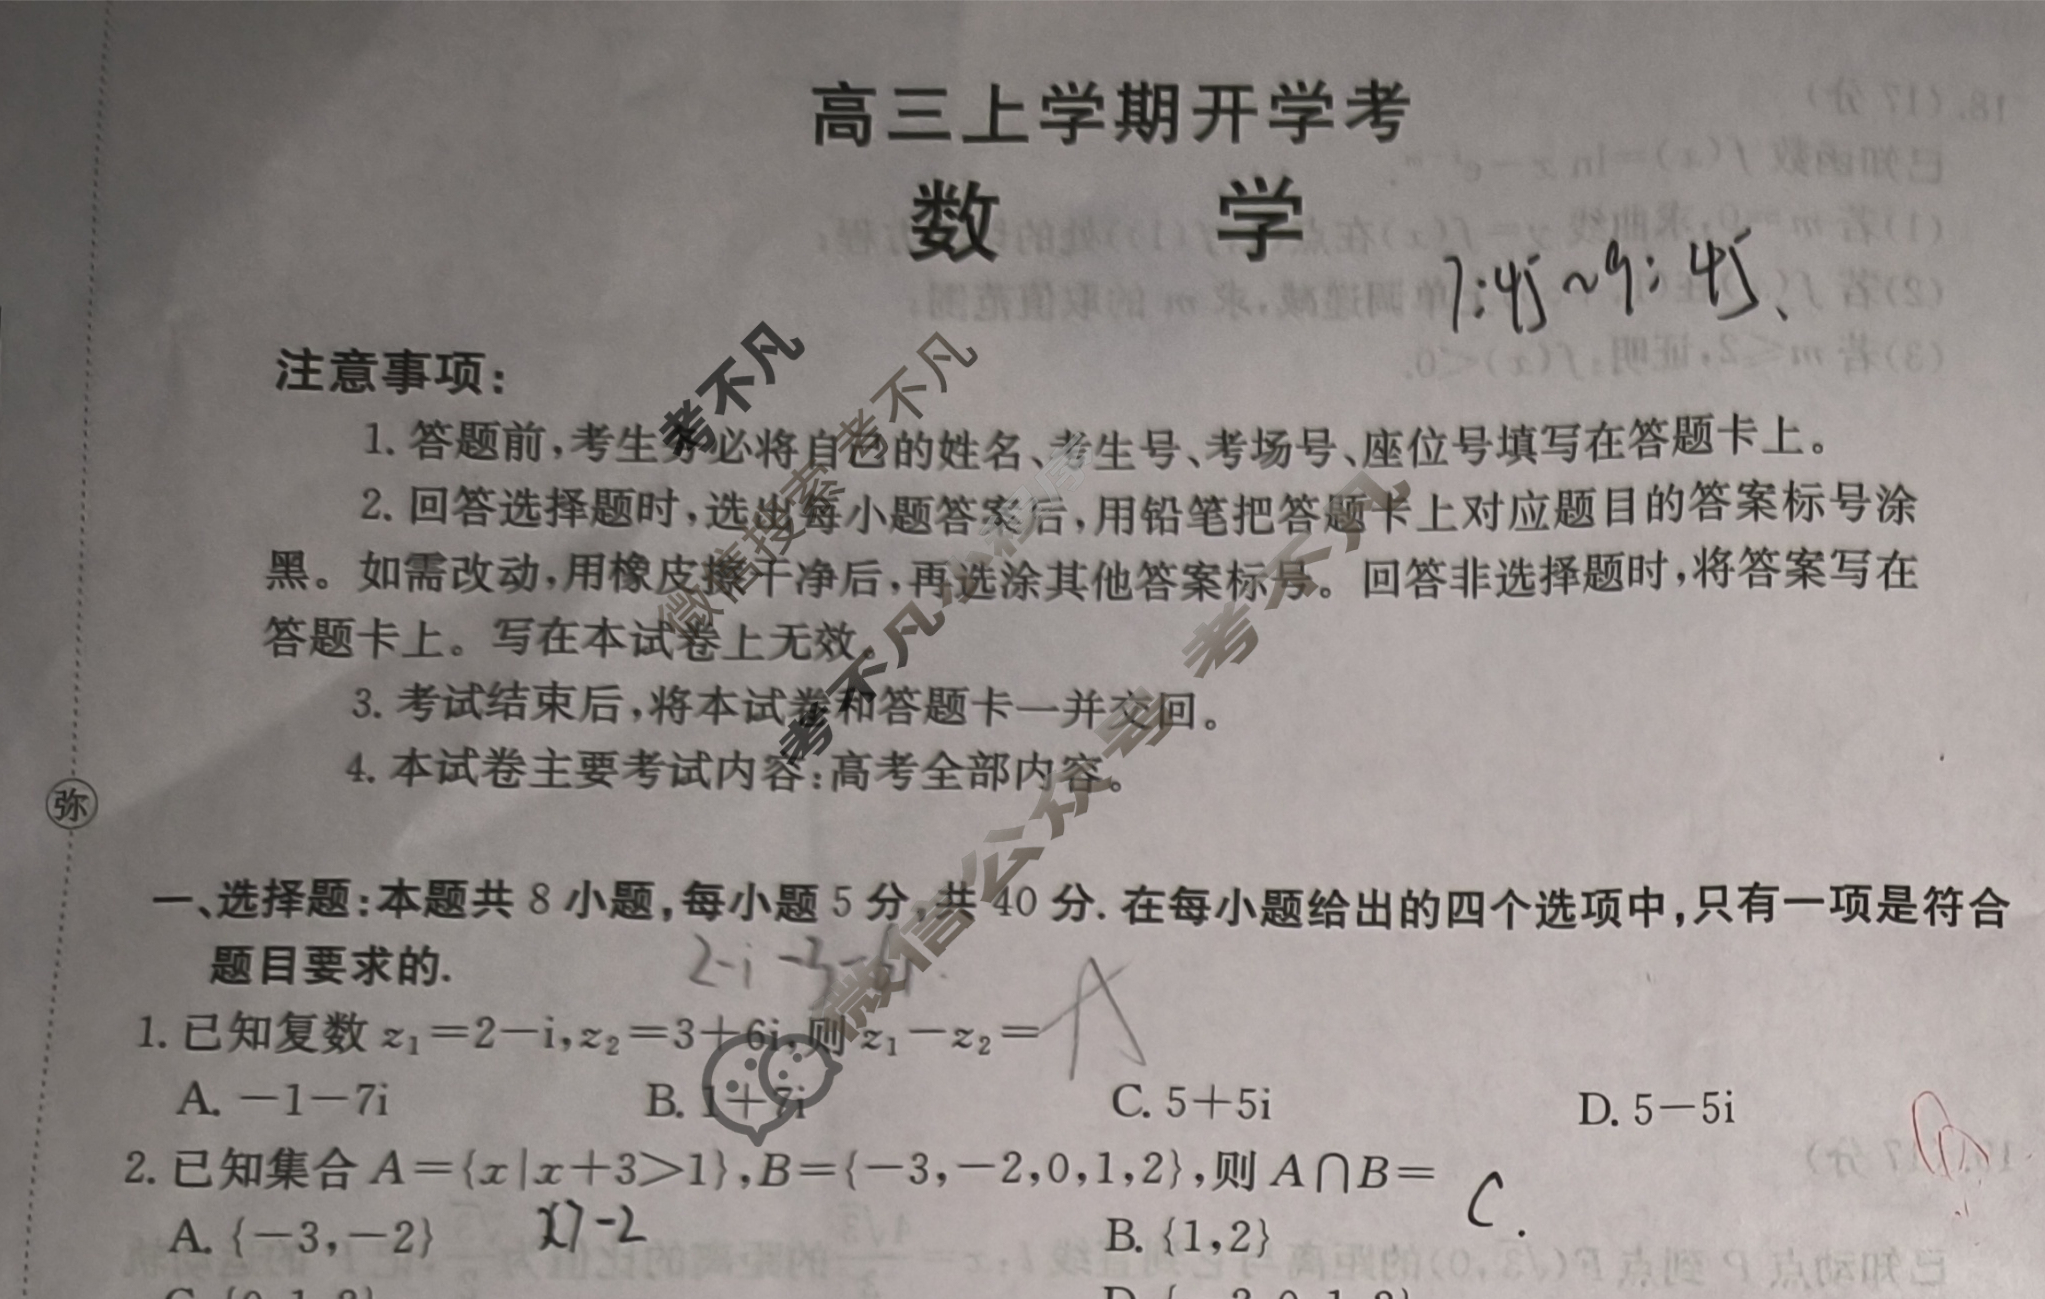 高三上学期开学考
数 学
7:45~9:45、
注意事项:
1. 答题前,考生务必将自己的姓名、考生号、考场号、座位号填写在答题卡上。
2. 回答选择题时,选出每小题答案后,用铅笔把答题卡上对应题目的答案标号涂
黑。如需改动,用橡皮擦干净后,再选涂其他答案标号。回答非选择题时,将答案写在
答题卡上。写在本试卷上无效。
3. 考试结束后,将本试卷和答题卡一并交回。
4. 本试卷主要考试内容:高考全部内容。
弥
一、选择题:本题共 8 小题,每小题 5 分,共 40 分. 在每小题给出的四个选项中,只有一项是符合
题目要求的.
2-i-3-6i
1. 已知复数 z₁=2-i,z₂=3+6i,则 z₁-z₂= A
A. -1-7i B. 1+7i C. 5+5i D. 5-5i
2. 已知集合 A={x|x+3>1},B={-3,-2,0,1,2},则 A∩B= C.
A. {-3,-2} x>-2 B. {1,2}
考不凡
微信搜索 考不凡
考不凡小程序
微信公众号 考不凡